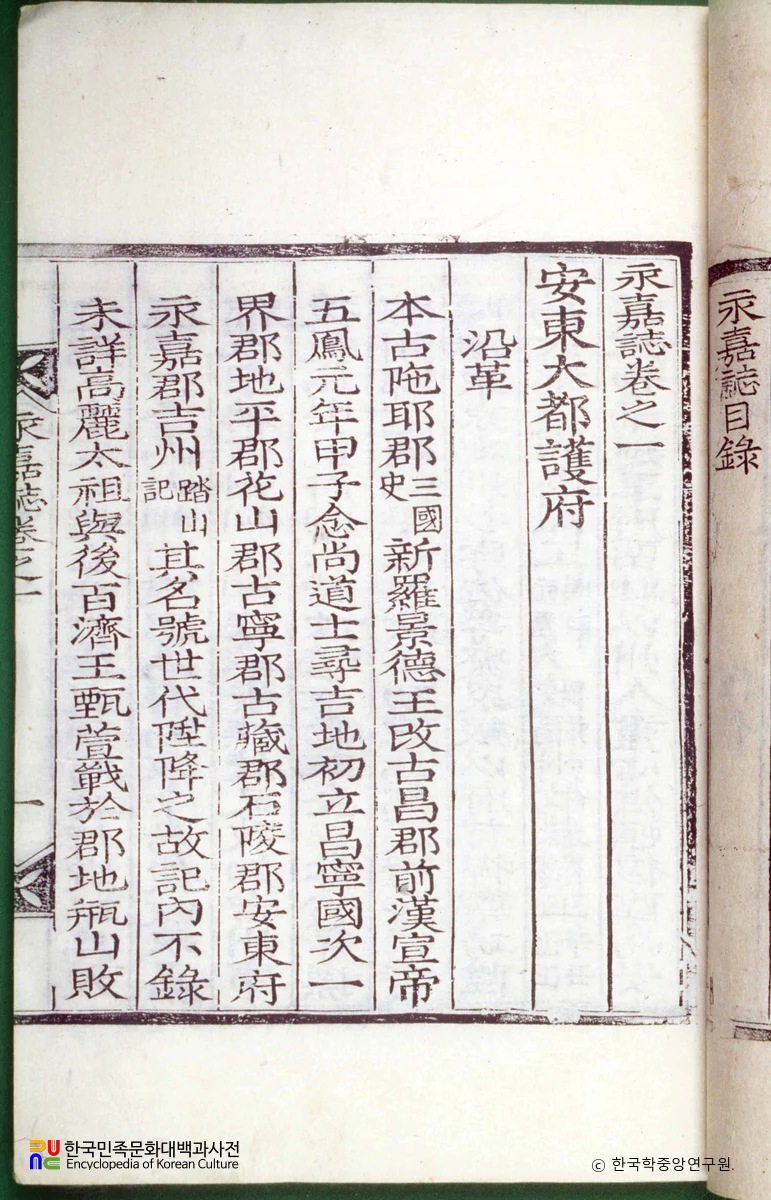 永嘉誌目錄
永嘉誌卷之一
安東大都護府
沿革
本古陁耶郡三國史新羅景德王改古昌郡前漢宣帝
五鳳元年甲子念尚道士尋吉地初立昌寧國次一
界郡地平郡花山郡古寧郡古藏郡石陵郡安東府
永嘉郡吉州踏山記其名號世代陞降之故記內不錄
未詳高麗太祖與後百濟王甄萱戰於郡地甁山敗
永嘉誌卷之一
一
한국민족문화대백과사전
Encyclopedia of Korean Culture
© 한국학중앙연구원.